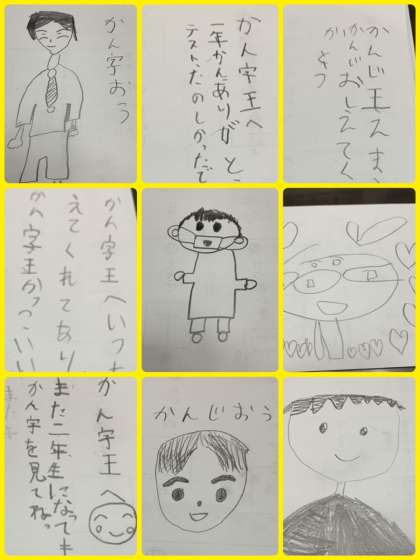 かん字おう
かん字王へ
一年かんありがと
テスト、たのしかったで
かんじ王さま、
かんじおしえてく
かん字王へいつも
えてくれてあり
かん字王かっこいい
かん字王へ
また二年生になっても
かん字を見てねっ
かんじおう